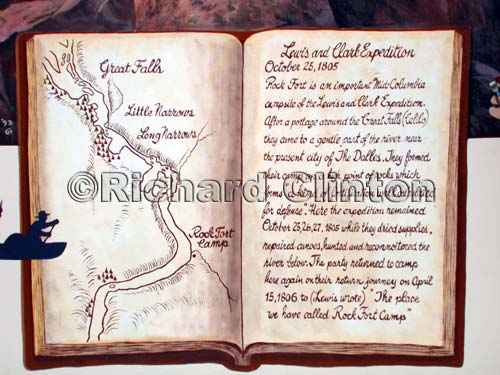 Great Falls
Little Narrows
Long Narrows
Rock Fort
Camp
Lewis and Clark Expedition
October 25, 1805
Rock Fort is an important Mid-Columbia
campsite of the Lewis and Clark Expedition.
After a portage around the Great Falls (Celilo)
they came to a gentle part of the river near
the present city of The Dalles. They formed
their camp on a high point of rocks which
for defense". Here the expedition remained
October 25, 26, 27, 1805 while they dried supplies,
repaired canoes, hunted and reconnoitered the
river below. The party returned to camp
here again on their return journey on April
15, 1806 to (Lewis wrote) "The place
we have called Rock Fort Camp"
©Richard Clinton